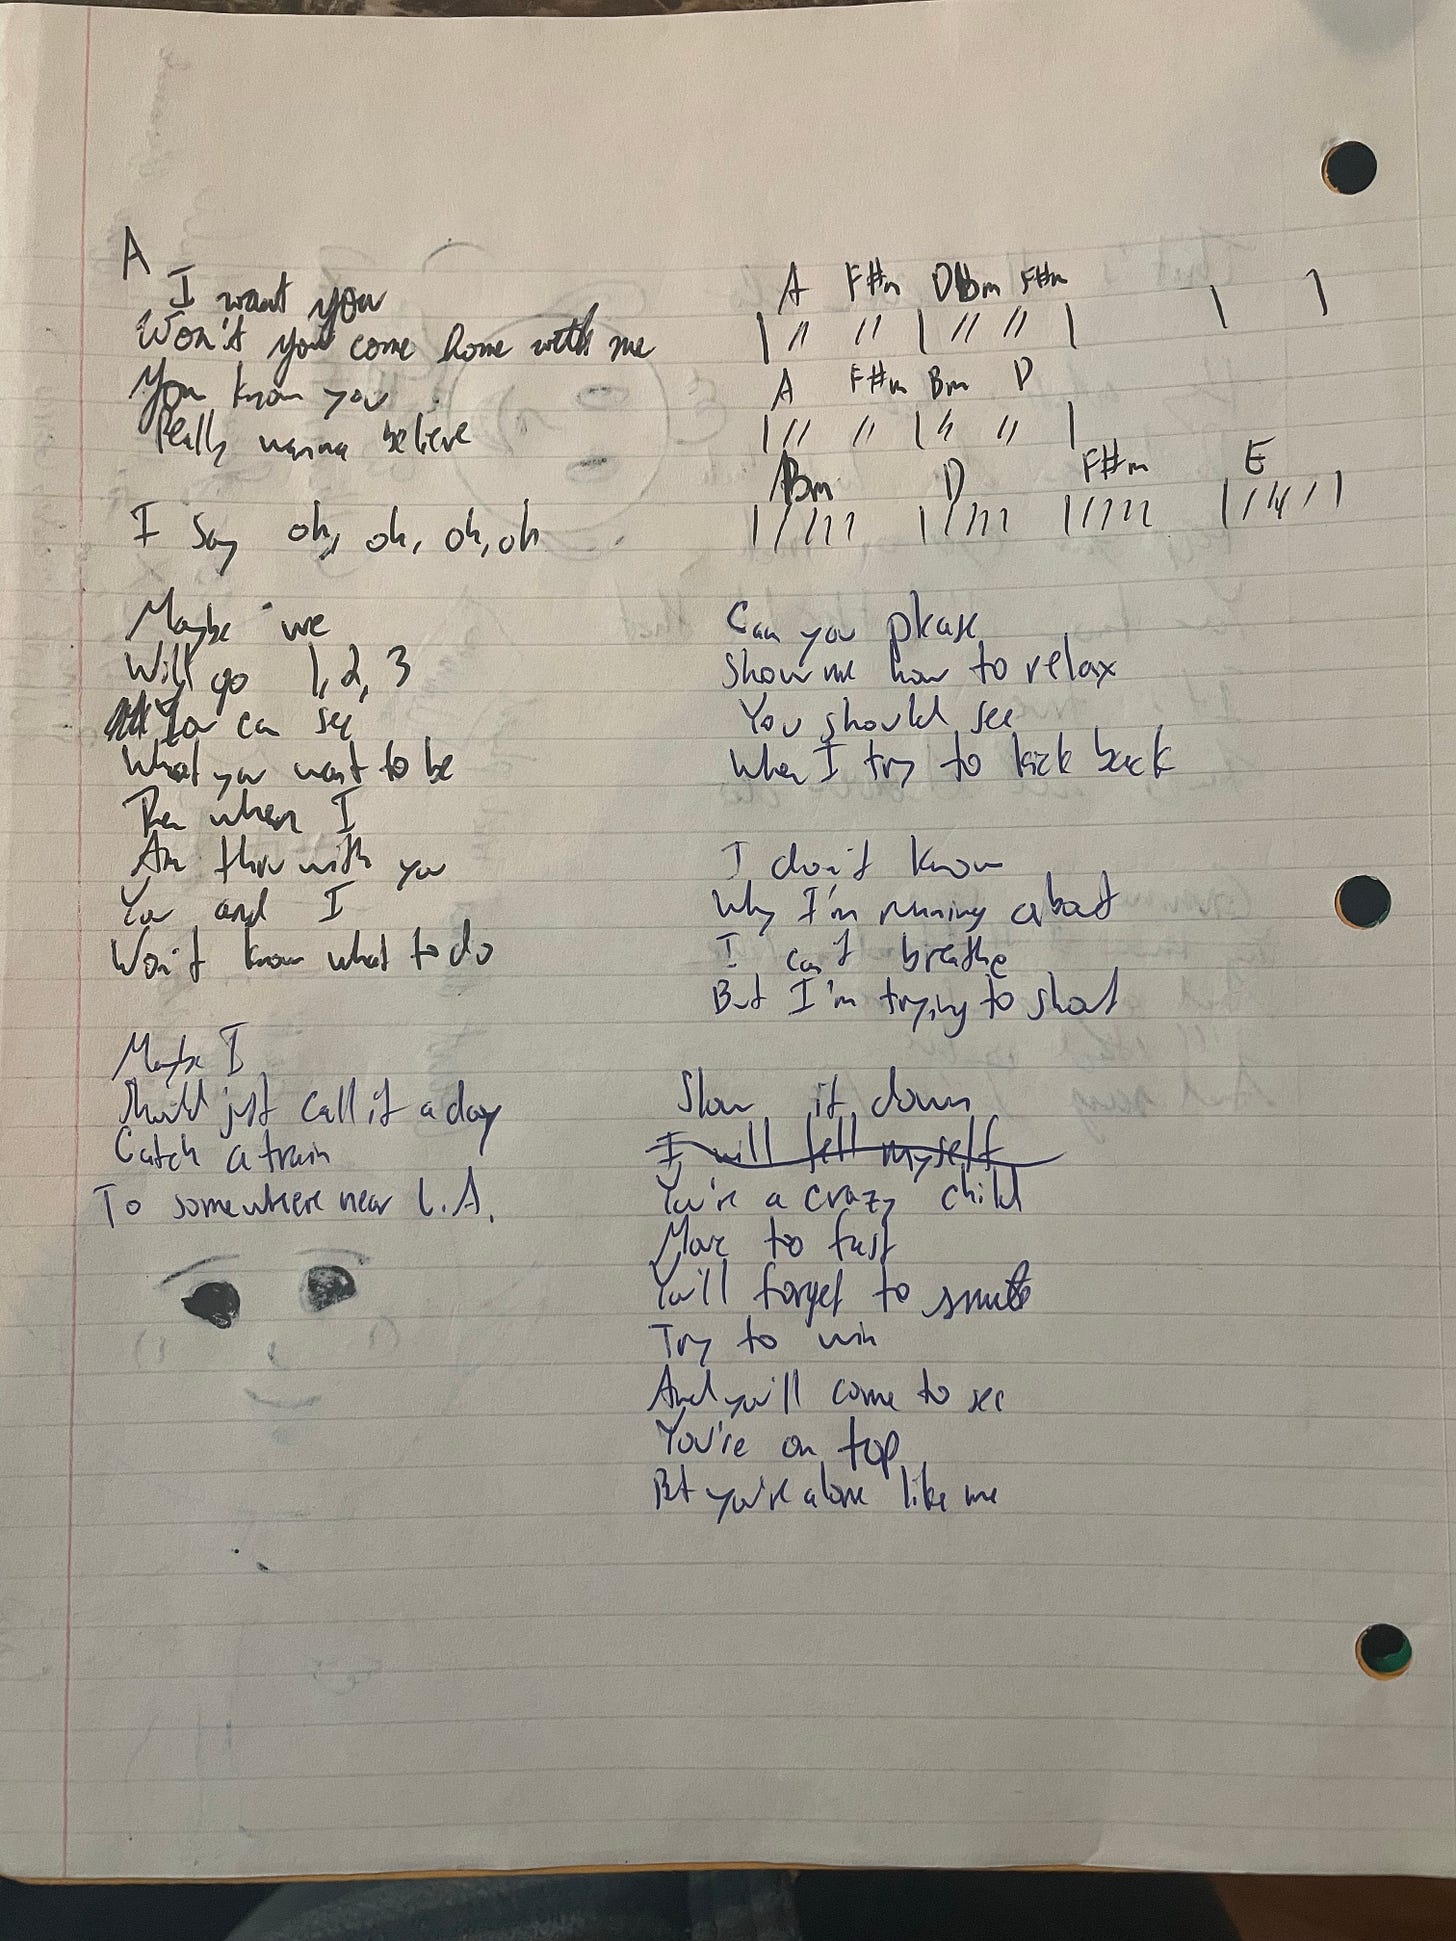 A
I want you
Won't you come home with me
You know you
Really wanna believe
I say oh, oh, oh, oh
Maybe we
Will go 1, 2, 3
You can see
What you want to be
Then when I
Am thru with you
You and I
Won't know what to do
Maybe I
Should just call it a day
Catch a train
To somewhere near L.A.
A F#m D Bm F#m
| // // | // // | | |
A F#m Bm D
| // // | // // |
Bm D F#m E
| //// | //// | //// | //// |
Can you please
Show me how to relax
You should see
When I try to kick back
I don't know
Why I'm running about
I can't breathe
But I'm trying to shout
Slow it down
I will tell myself
You're a crazy child
Move to fast
You'll forget to smile
Try to win
And you'll come to see
You're on top
But you're alone like me